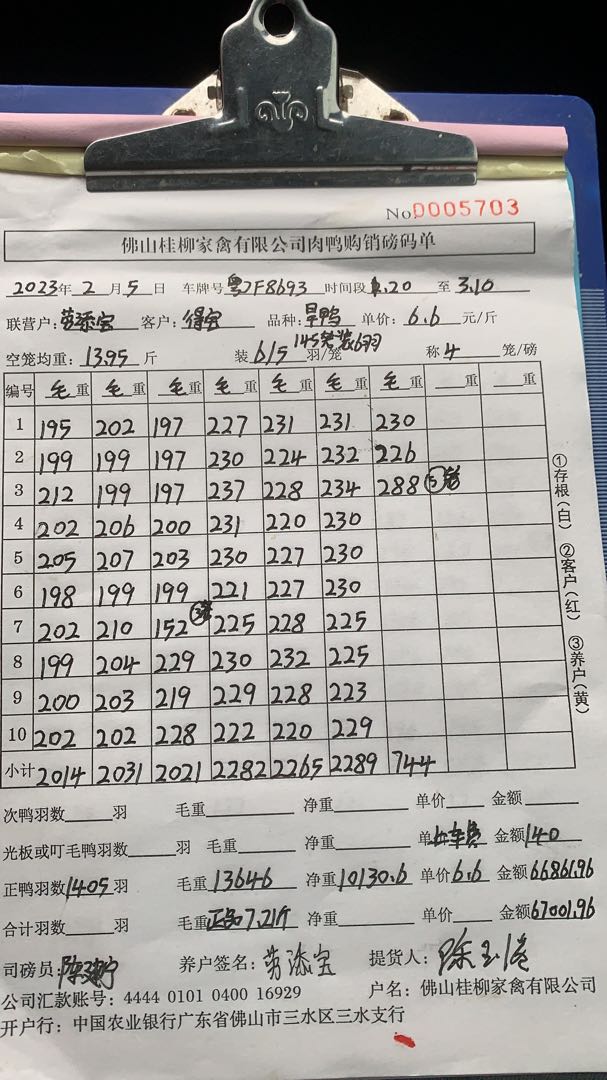 No 0005703
佛山桂柳家禽有限公司肉鸭购销磅码单
2023年 2 月 5 日 车牌号 粤ZF8693 时间段 1.20 至 3.10
联营户: 劳添宝 客户: 得宝 品种: 旱鸭 单价: 6.6 元/斤
145笼装6羽
空笼均重: 13.95 斤 装 6/5 羽/笼 称 4 笼/磅
编号 毛重 毛重 毛重 毛重 毛重 毛重 毛重 重 重
1 195 202 197 227 231 231 230
2 199 199 197 230 224 232 226
3 212 199 197 237 228 234 288 ⑤笼
4 202 206 200 231 220 230
5 205 207 203 230 227 230
6 198 199 199 221 227 230
7 202 210 152 ③笼 225 228 225
8 199 204 229 230 232 225
9 200 203 219 229 228 223
10 202 202 228 222 220 229
小计 2014 2031 2021 2282 2265 2289 744
①存根(白) ②客户(红) ③养户(黄)
次鸭羽数 羽 毛重 净重 单价 金额
光板或叮毛鸭羽数 羽 毛重 净重 单 上车费 金额 140
正鸭羽数 1405 羽 毛重 13646 净重 10130.6 单价 6.6 金额 66861.96
合计羽数 羽 毛重 正品7.21斤 净重 单价 金额 67001.96
司磅员: 养户签名: 劳添宝 提货人:
公司汇款账号: 4444 0101 0400 16929 户名: 佛山桂柳家禽有限公司
开户行: 中国农业银行广东省佛山市三水区三水支行